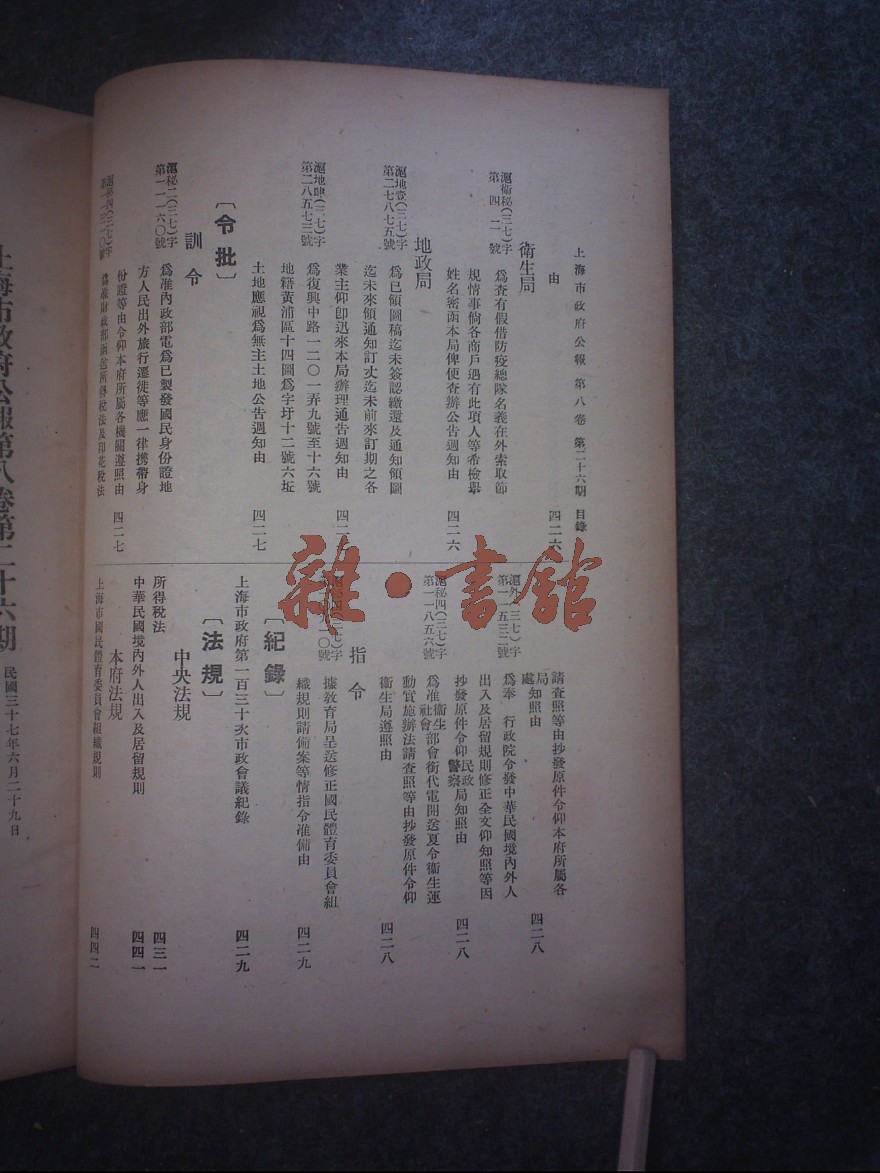 上海市政府公報 第八卷 第二十六期 目錄
由
四二六
衛生局
滬衛秘(三七)字
第四二號
為查有假借防疫總隊名義在外索取節
規情事倘各商戶遇有此項人等希檢舉
姓名密函本局俾便查辦公告週知由
四二六
地政局
滬地壹(三七)字
第二七八七五號
為已領圖稿迄未簽認繳還及通知領圖
迄未來領通知訂丈迄未前來訂期之各
業主仰卽迅來本局辦理通告週知由
滬地肆(三七)字
第二八五七三號
為復興中路一二〇一弄九號至十六號
地籍黃浦區十四圖為字圩十二號六坵
土地應視為無主土地公告週知由
四二七
〔令批〕
訓令
滬秘二(三七)字
第一一一六〇號
為准內政部電為已製發國民身份證地
方人民出外旅行遷徙等應一律携帶身
份證等由令仰本府所屬各機關遵照由
四二七
滬秘四(三七)字
為准財政部函送所得稅法及印花稅法
請查照等由抄發原件令仰本府所屬各
局
處知照由
四二八
滬外(三七)字
第一一五三三號
為奉 行政院令發中華民國境內外人
出入及居留規則修正全文仰知照等因
抄發原件令仰民政
警察局知照由
四二八
滬秘四(三七)字
第一一八五六號
為准衞生
社會部會銜代電開送夏令衞生運
動實施辦法請查照等由抄發原件令仰
衞生局遵照由
四二八
指令
據教育局呈送修正國民體育委員會組
織規則請備案等情指令准備由
四二九
〔紀錄〕
上海市政府第一百三十次市政會議紀錄
四二九
〔法規〕
中央法規
所得稅法
四三一
中華民國境內外人出入及居留規則
四四一
本府法規
上海市國民體育委員會組織規則
四四二
上海市政府公報第八卷第二十六期
民國三十七年六月二十九日
雜·書館